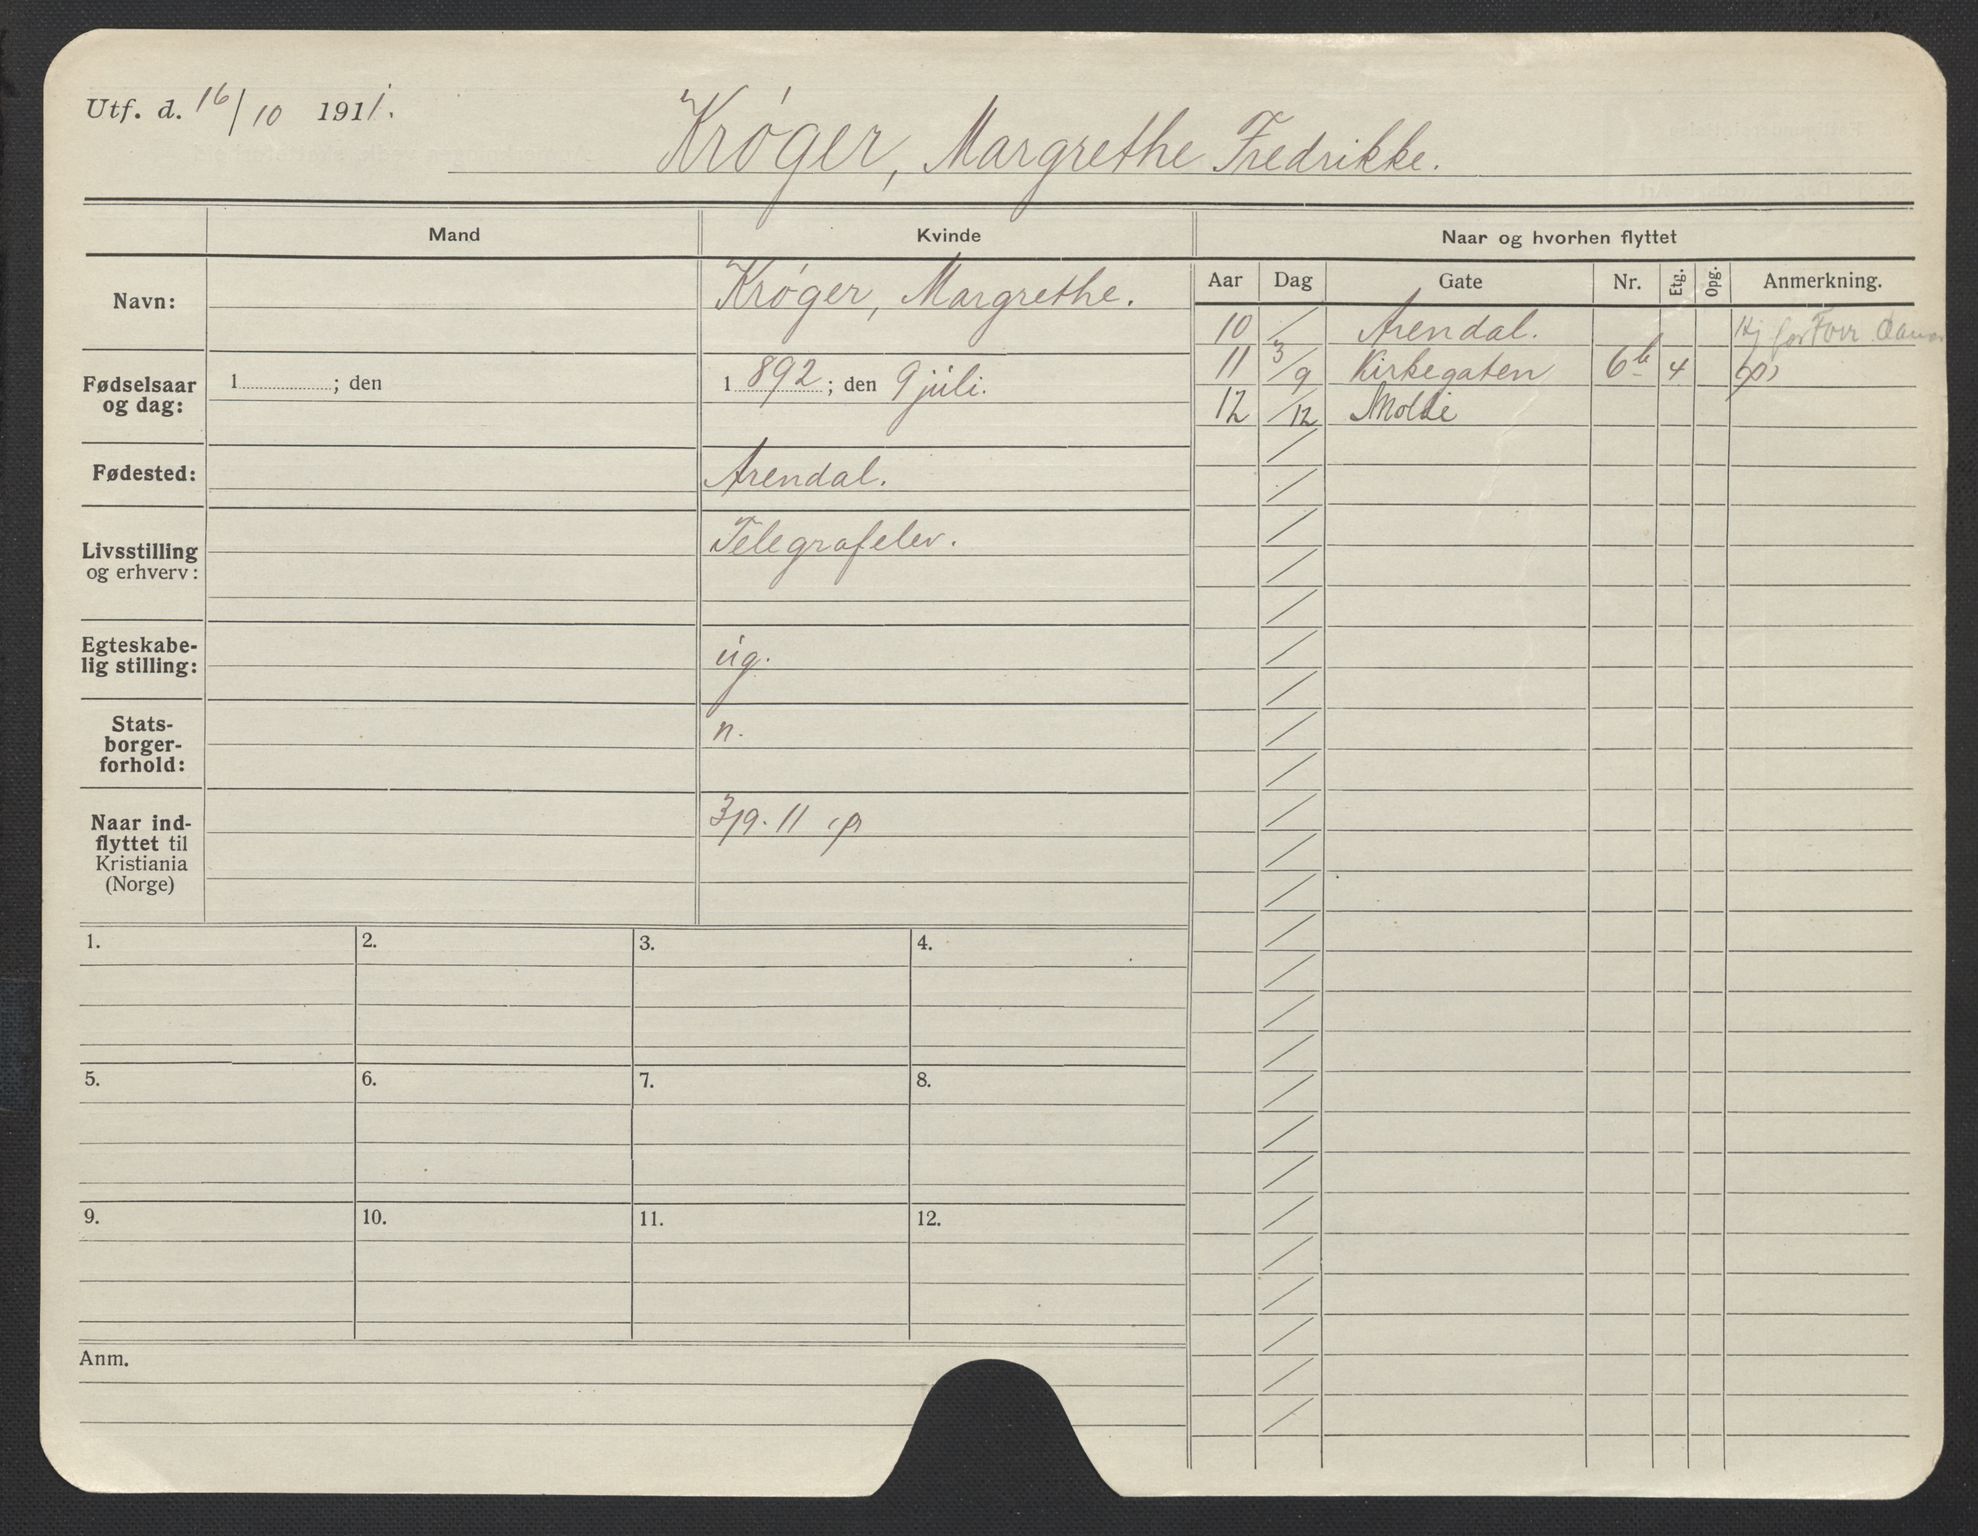 Utf. d. 16/10 1911.
Krøger, Margrethe Fredrikke.
Mand
Kvinde
Naar og hvorhen flyttet
Navn:
Krøger, Margrethe.
Fødselsaar og dag:
1 ; den
1892 ; den 9 júli.
Fødested:
Arendal.
Livsstilling og erhverv:
Telegrafelev.
Egteskabe-
lig stilling:
úg.
Stats-
borger-
forhold:
n.
Naar ind-
flyttet til
Kristiania
(Norge)
3/9. 11
Aar Dag Gate Nr. Etg. Opg. Anmerkning.
10 / Arendal.
11 3/9 Kirkegaten 6b 4
12 /12 Molde
1. 2. 3. 4.
5. 6. 7. 8.
9. 10. 11. 12.
Anm.